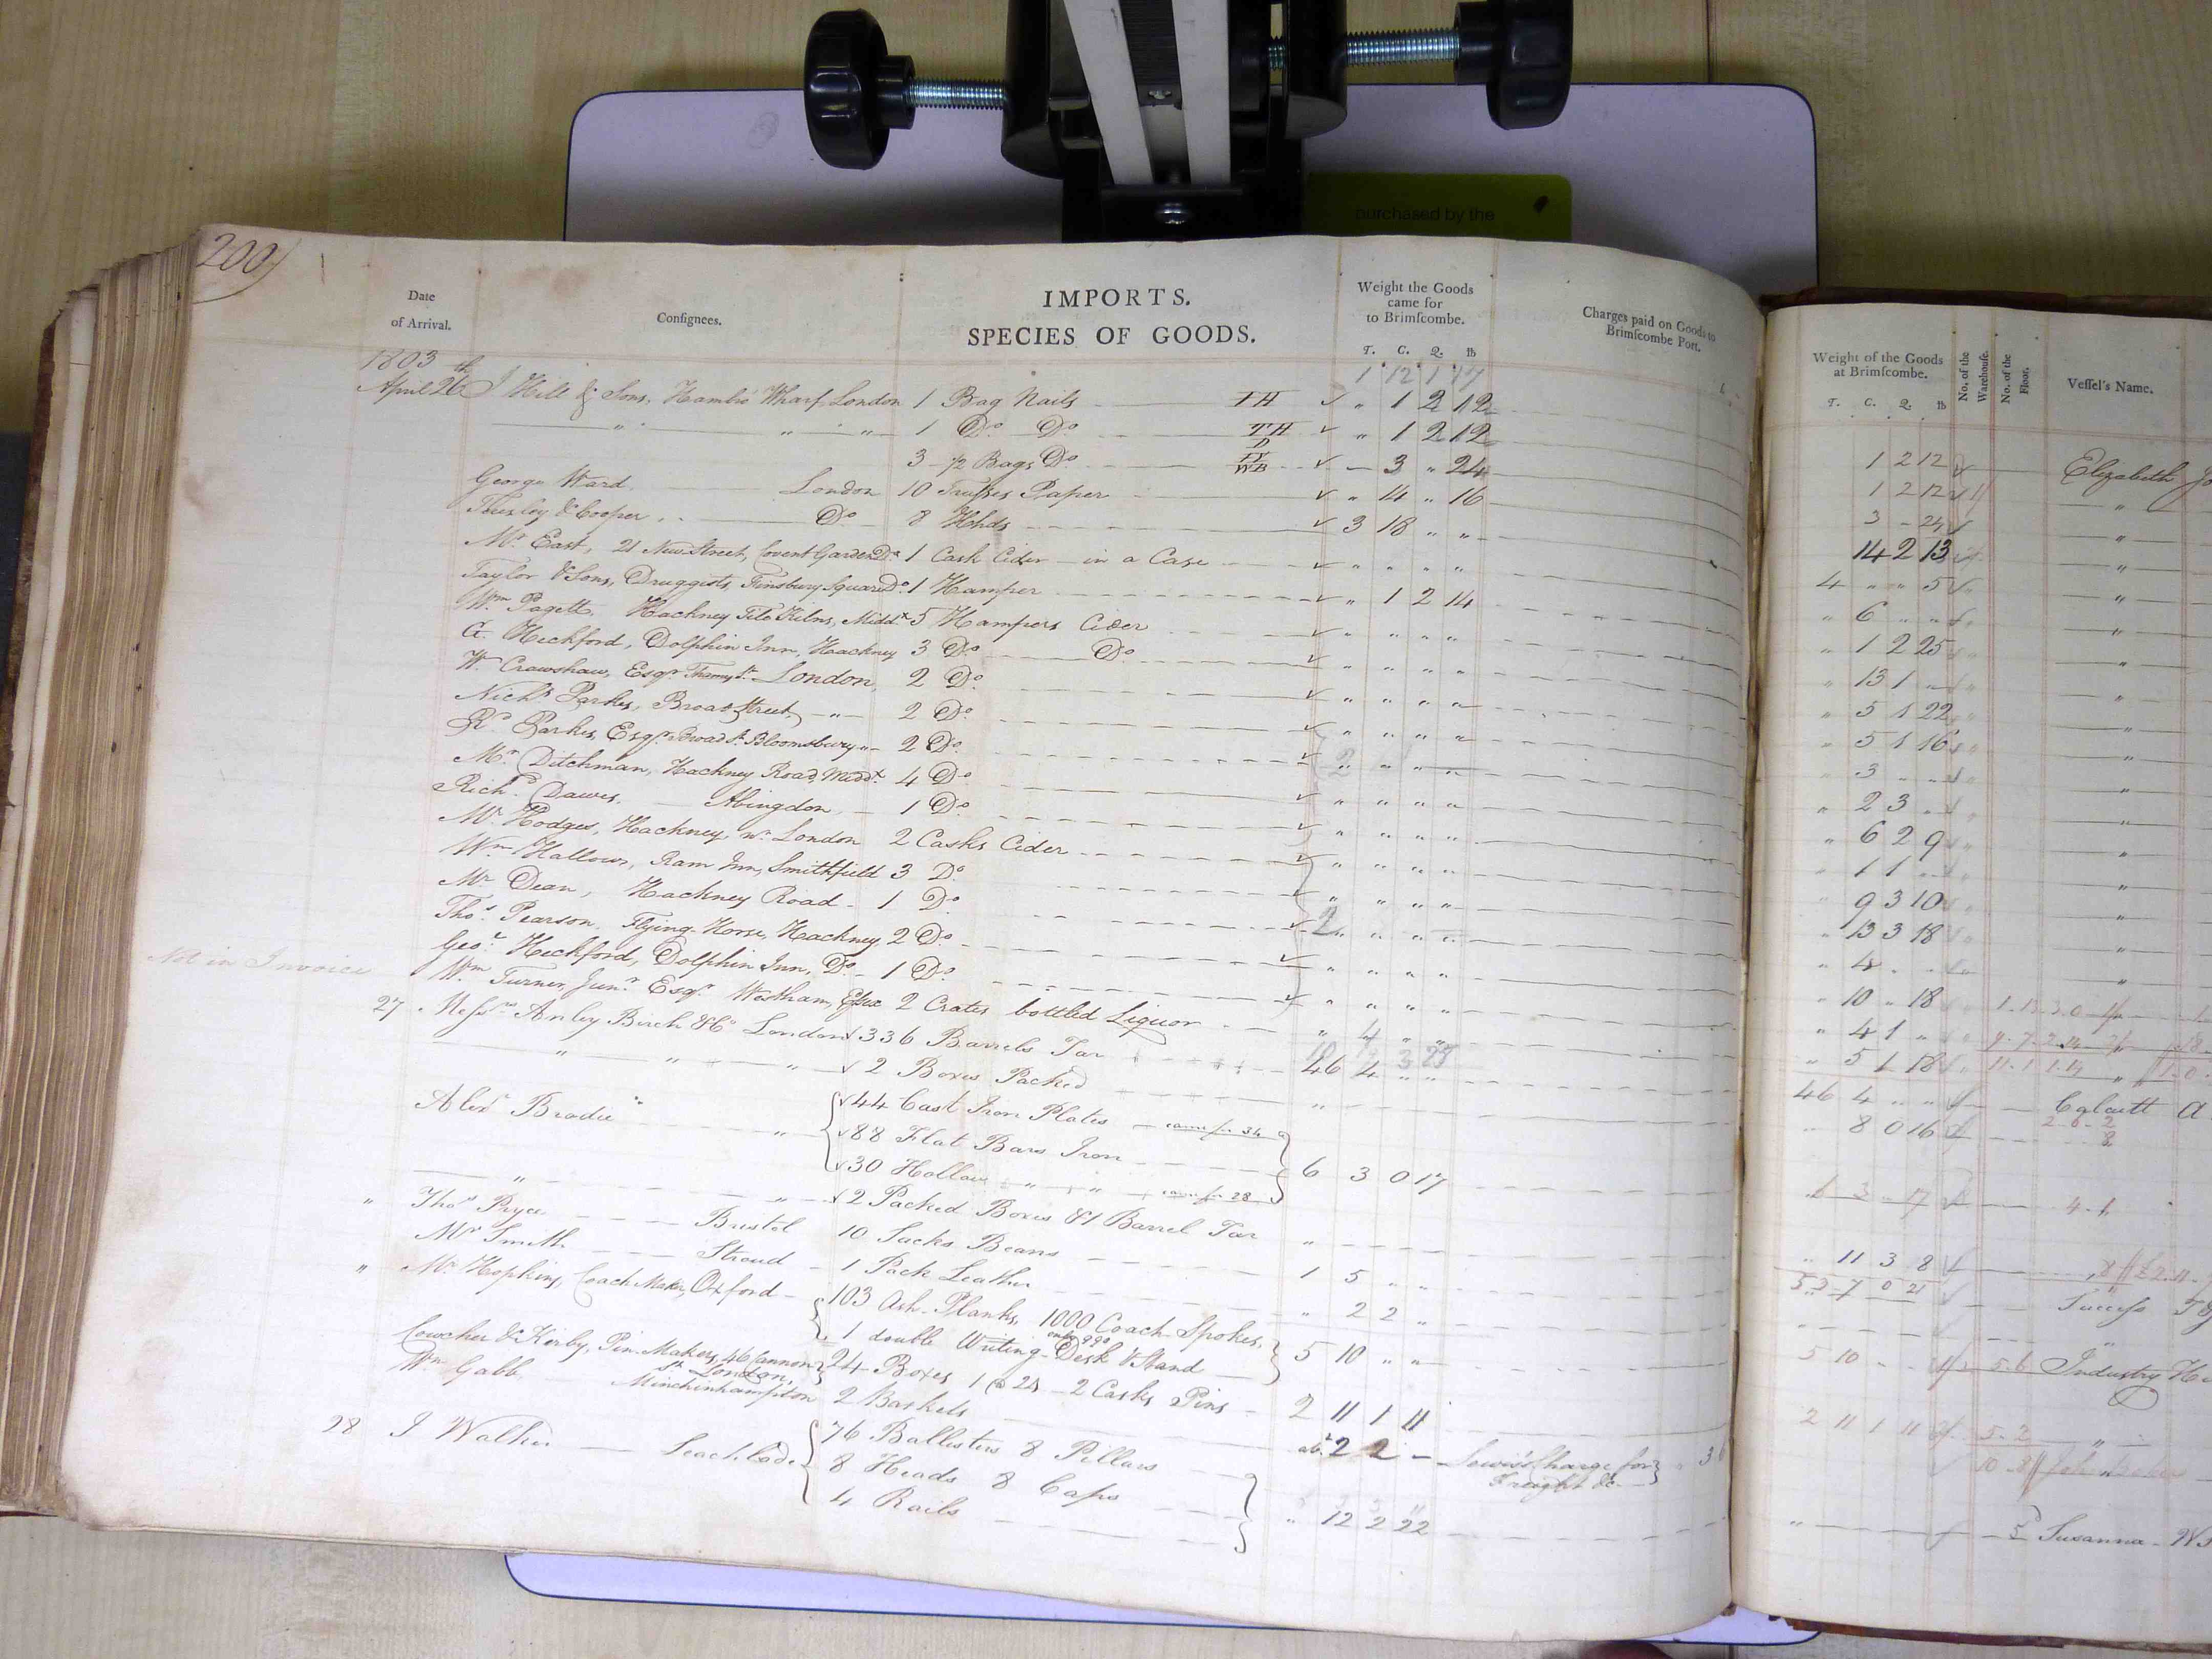 purchased by the
200
Date
of Arrival.
Consignees.
IMPORTS.
SPECIES OF GOODS.
Weight the Goods
came for
to Brimscombe.
T. C. Q. lb
Charges paid on Goods to
Brimscombe Port.
Weight of the Goods
at Brimscombe.
T. C. Q. lb
No. of the Warehouse.
No. of the Floor.
Vessel's Name.
1803
1 12 1 17
April 26th J Hill & Sons, Hambro' Wharf, London 1 Bag Nails TH " 1 2 12
1 2 12 Elizabeth
" " " 1 Do Do TH D " 1 2 12
1 2 12 "
3 1/2 Bags Do WB 3 " 24
3 - 24 "
George Ward London 10 Trusses Paper " 14 " 16
14 2 13 "
& Cooper Do 8 Hhds 3 18 " "
4 " " 5 "
Mr East, 21 New Street, Covent Garden Do 1 Cask Cider in a Case " " " "
" 6 " " "
Taylor & Sons, Druggists, Finsbury Square Do 1 Hamper " 1 2 14
" 1 2 25 "
Wm Pagett, Hackney Tile Kilns, Middx 5 Hampers Cider " " " "
" 13 1 "
G. Heckford, Dolphin Inn, Hackney 3 Do Do " " " "
" 5 1 22 "
W Crawshaw, Esqr Thames St London 2 Do " " " "
" 5 1 16 "
Nichs Parkes, Broad Street, " 2 Do " " " "
" 3 " "
Rd Parkes, Esqr Broad St Bloomsbury " 2 Do 2 " " "
" 2 3 "
Mr Ditchman, Hackney Road, Middx 4 Do " " " "
" 6 2 9 "
Richd Dawes, Abingdon 1 Do " " " "
" 1 1 "
Mr Hodges, Hackney, nr London 2 Casks Cider " " " "
" 9 3 10 "
Wm Hallows, Ram Inn, Smithfield 3 Do " " " "
" 13 3 18 "
Mr Dean, Hackney Road 1 Do 2 " " "
" 4 "
Thos Pearson, Flying Horse, Hackney 2 Do " " " "
" 10 " 18
Geo Heckford, Dolphin Inn, Do 1 Do " " " "
" 4 1 "
Not in Invoice
Wm Turner, Junr Esqr Westham, Essex 2 Crates bottled Liquor " 4 " "
" 5 1 18
27 Messrs Anley Birch & Co London 336 Barrels Tar 46 4 " "
46 4 " " Calcutt
" " " 2 Boxes Packed "
8 0 16
Alexr Brodie " 44 Cast Iron Plates came for 34
88 Flat Bars Iron
30 Hollow " " came for 28
6 3 0 17
" " 2 Packed Boxes & 1 Barrel Tar "
" 11 3 8
" Thos Pryce Bristol 10 Sacks Beans 1 5 " "
Success
Mr Smith Stroud 1 Pack Leather " 2 2 "
" Mr Hopkins, Coach Maker, Oxford 103 Ash Planks, 1000 Coach Spokes,
only 990
1 double Writing Desk & Stand
5 10 " "
5 10 5.6 Industry
Cowcher & Kirby, Pin Makers, 46 Cannon St London, 24 Boxes 1 @ 24 2 Casks Pins 2 11 1 11
2 11 1 11 5.2 "
Wm Gabb Minchinhampton 2 Baskets abt 2 2 - Lewis's Charge for
Freight &c
3
28 J Walker Leachlade 76 Ballisters 8 Pillars
8 Heads 8 Caps
4 Rails
" 12 2 22
" 5 Susanna